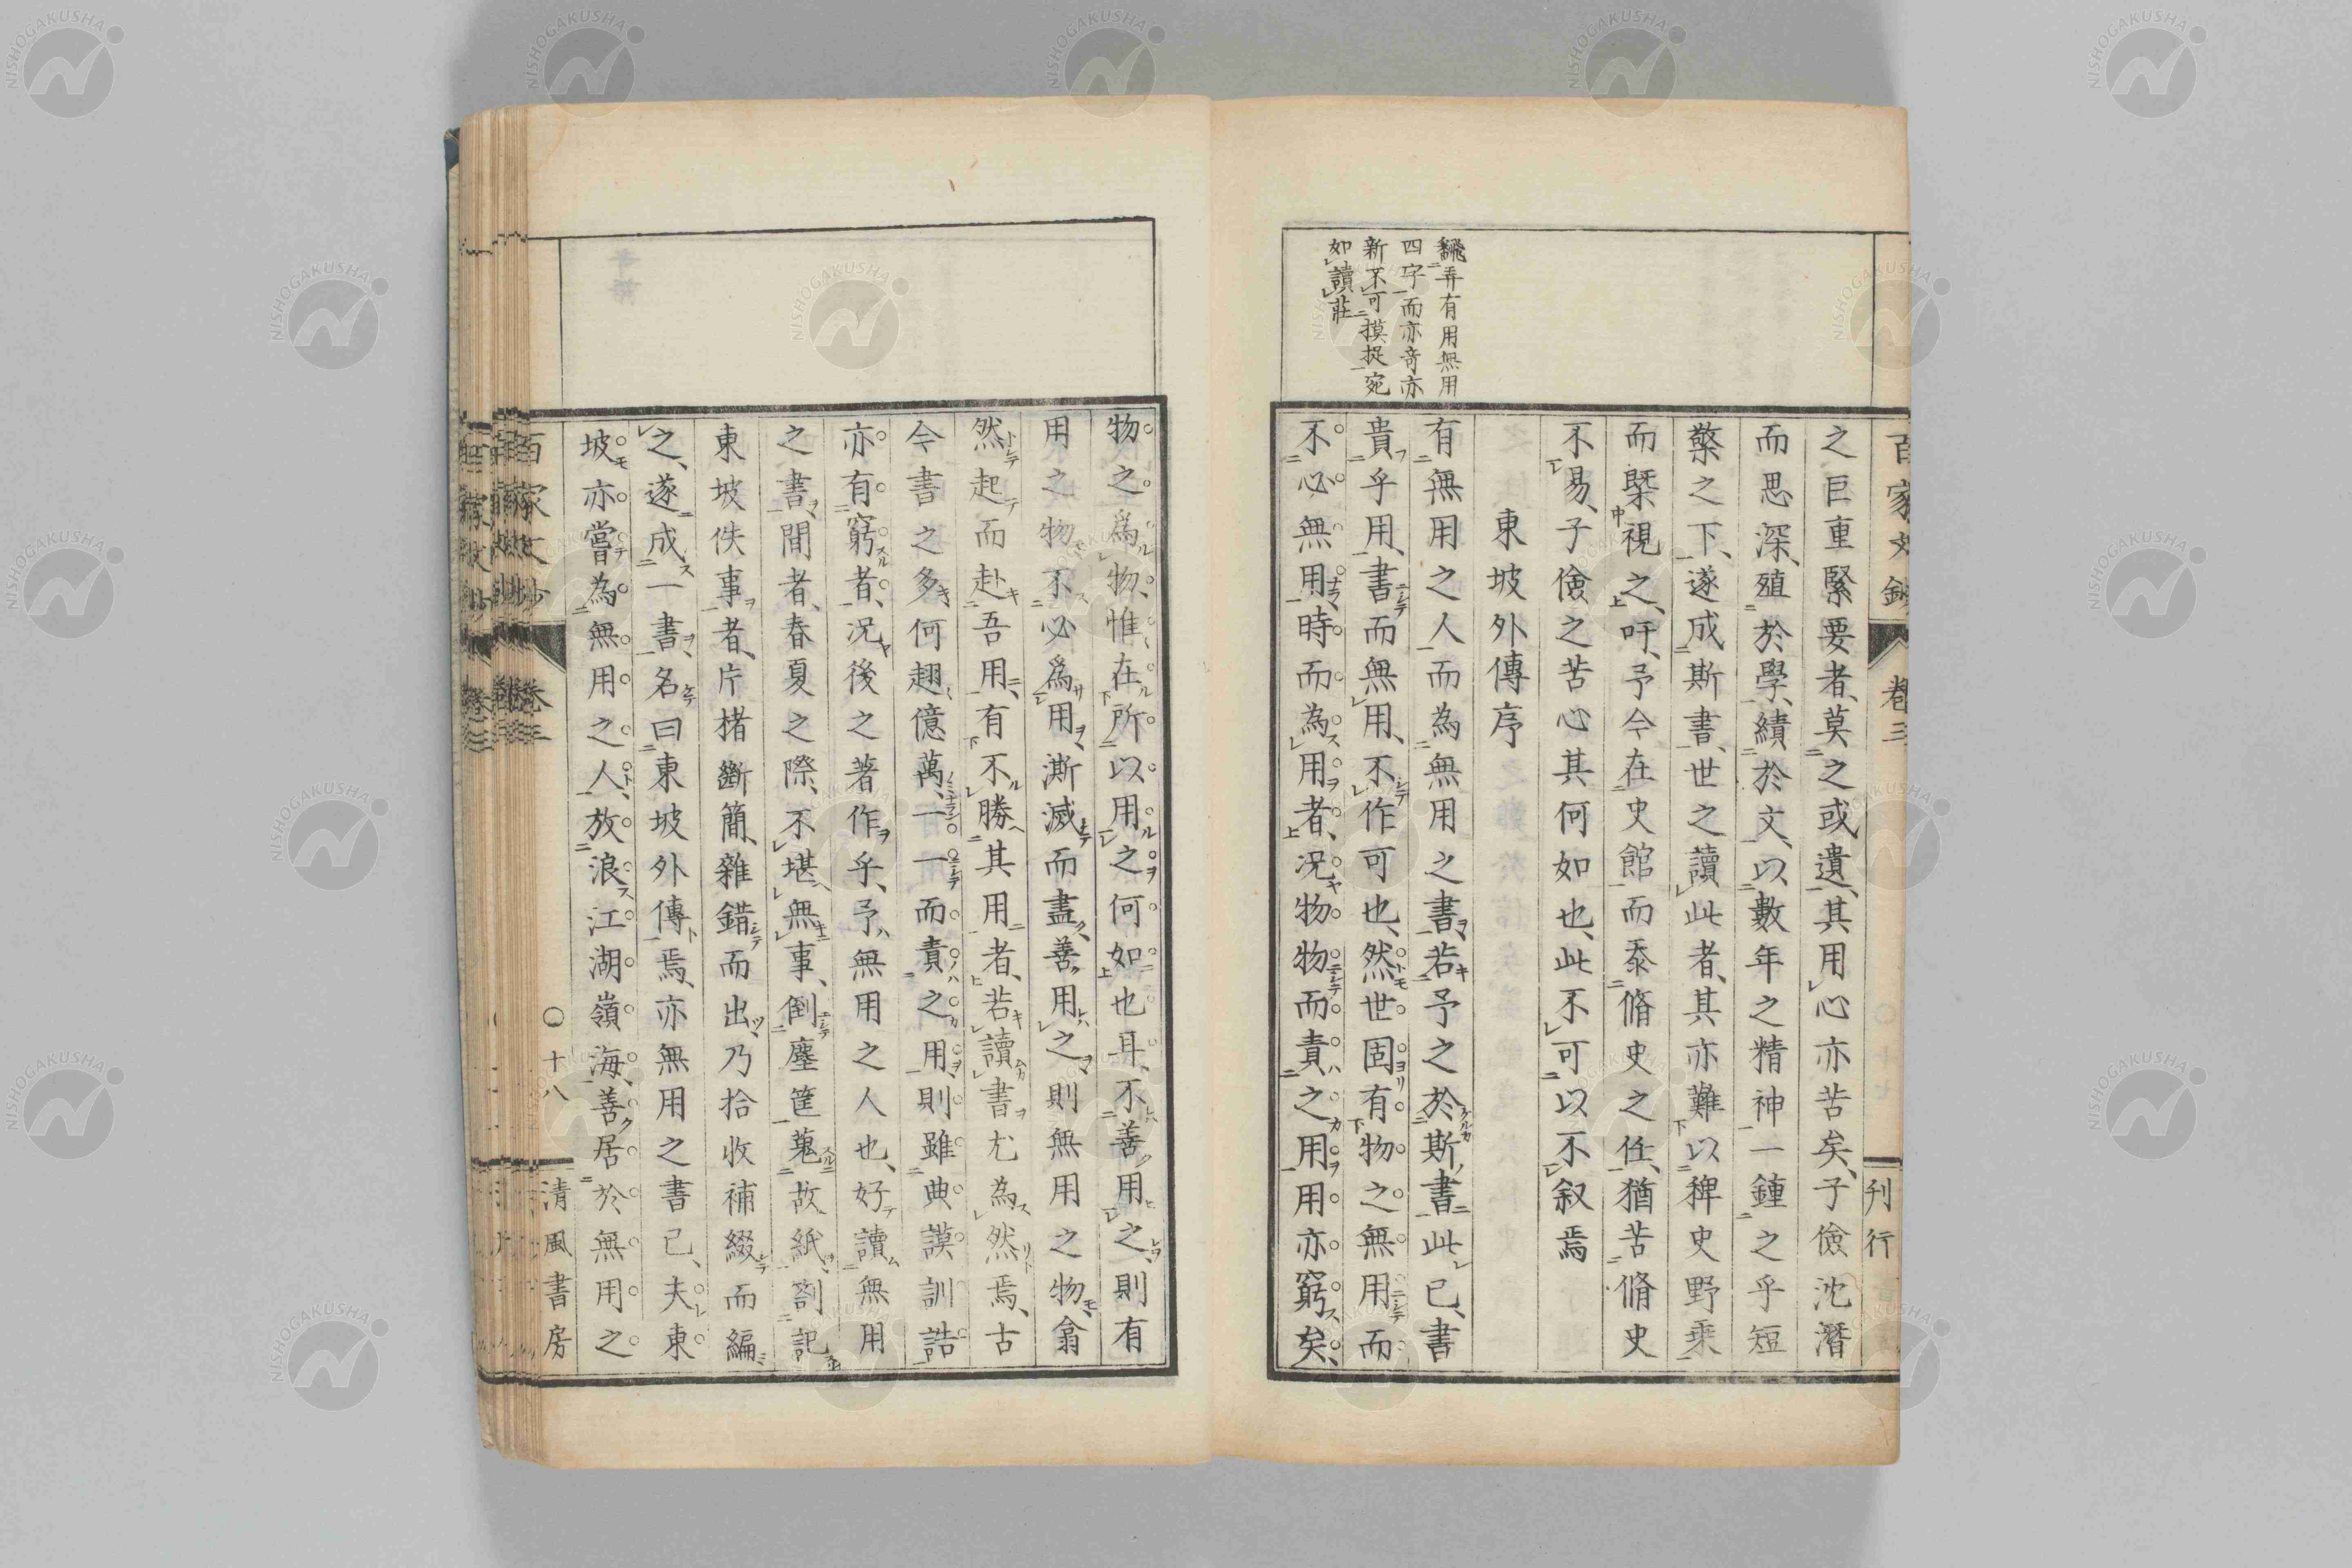 百家文鈔
卷三
刊行
之巨重緊要者、莫之或遺、其用心亦苦矣、子儉沈潛
而思深、殖於學、績於文、以數年之精神一鍾之乎短
檠之下、遂成斯書、世之讀此者、其亦難以稗史野乘
而槩視之、吁、予今在史館而忝脩史之任、猶苦脩史
不易、子儉之苦心其何如也、此不可以不叙焉
東坡外傳序
有無用之人而為無用之書、若予之於斯書此已、書
貴乎用、書而無用、不作可也、然世固有物之無用而
不必無用、時而為用者、况物物而責之用、用亦窮矣、
飜弄有用無用
四字而亦奇亦
新不可摸捉宛
如讀莊
物之爲物、惟在所以用之何如也耳、不善用之、則有
用之物不必爲用、澌滅而盡、善用之、則無用之物、翕
然起而赴吾用、有不勝其用者、若讀書尤為然焉、古
今書之多、何翅億萬、一一而責之用、則雖典謨訓誥
亦有窮者、况後之著作乎、予無用之人也、好讀無用
之書、間者、春夏之際、不堪無事、倒塵筐蒐故紙、劄記
東坡佚事者、片楮斷簡、雜錯而出、乃拾收補綴而編
之、遂成一書、名曰東坡外傳焉、亦無用之書已、夫東
坡亦嘗為無用之人、放浪江湖嶺海、善居於無用之
百家文鈔
卷三
〇十八
清風書房
NISHOGAKUSHA